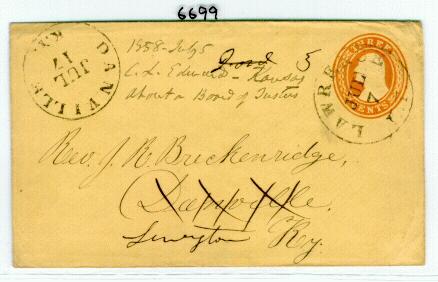 6699
DANVILLE KY.
JUL
17
1858 - July 5
C. L. Edwards - Kansas
about a Board of Trustees
3
LAWRE
JUL
7
THREE
CENTS
Rev. J. R. Breckenridge,
Danville.
Lexington Ky.